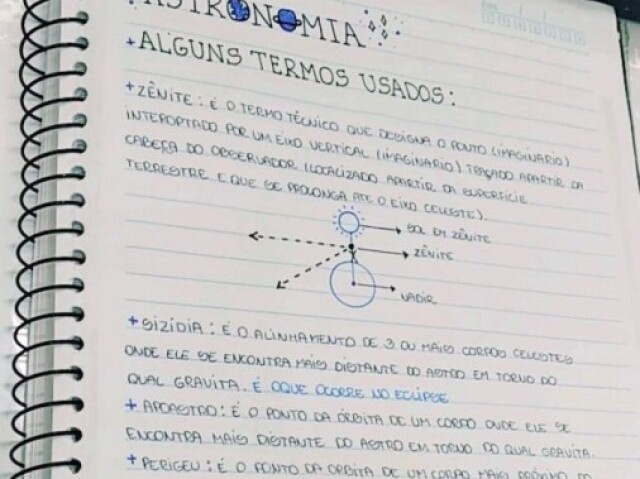 ASTRONOMIA
+ALGUNS TERMOS USADOS:
+ZÊNITE: É O TERMO TÉCNICO QUE DESIGNA O PONTO (IMAGINARIO)
INTEROPTADO POR UM EIXO VERTICAL (IMAGINARIO) TRAÇADO APARTIR DA
CABEÇA DO OBSERVADOR (LOCALIZADO APARTIR DA SUPERFÍCIE
TERRESTRE E QUE SE PROLONGA ATÉ O EIXO CELESTE).
SOL EM ZÊNITE
ZÊNITE
NADIR
+SIZÍDIA: É O ALINHAMENTO DE 3 OU MAIS CORPOS CELESTES
ONDE ELE SE ENCONTRA MAIS DISTANTE DO ASTRO EM TORNO DO
QUAL GRAVITA. É OQUE OCORRE NO ECLIPSE
+APOASTRO: É O PONTO DA ÓRBITA DE UM CORPO ONDE ELE SE
ENCONTRA MAIS DISTANTE DO ASTRO EM TORNO DO QUAL GRAVITA.
+PERIGEU: É O PONTO DA ORBITA DE UM CORPO MAIS PRÓXIMO DO